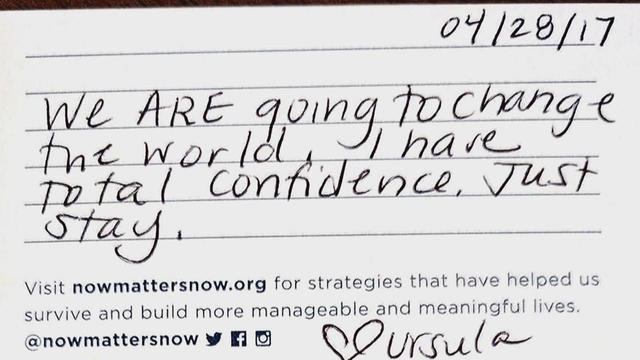 04/28/17
We ARE going to change
the world, I have
total confidence. Just
stay.
Visit nowmattersnow.org for strategies that have helped us
survive and build more manageable and meaningful lives.
@nowmattersnow
♡ Ursula